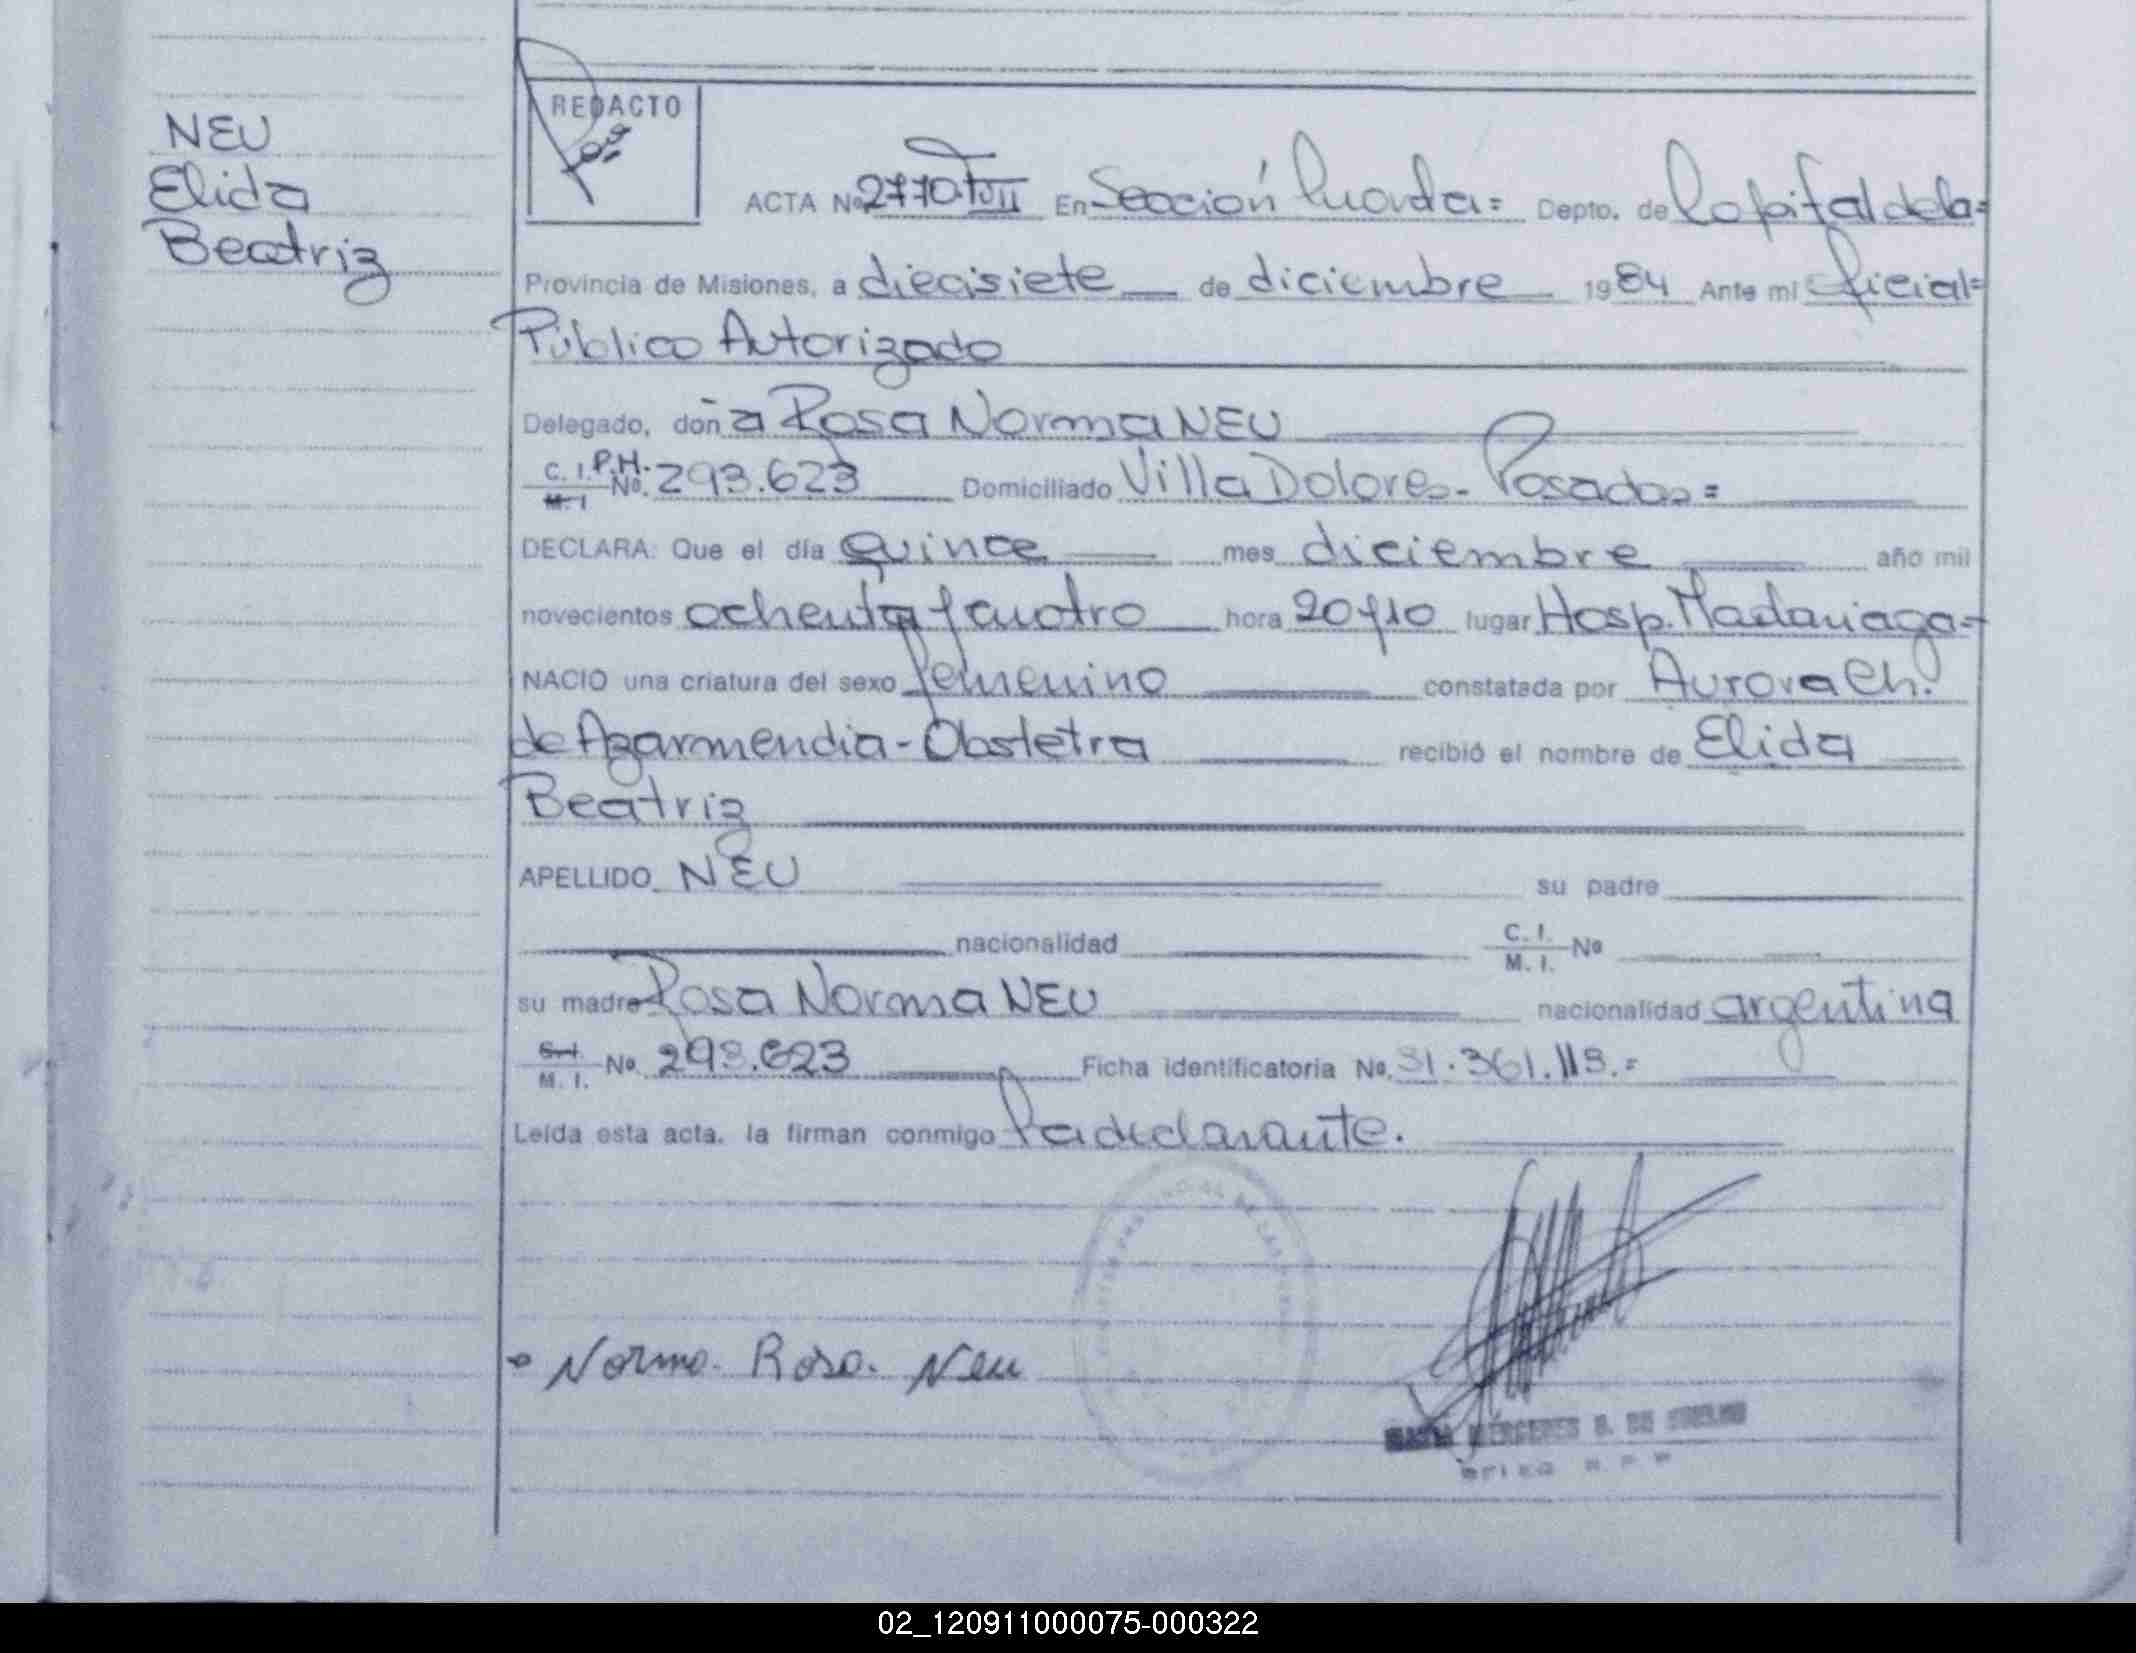 NEU
Elida
Beatriz
REDACTO
ACTA Nº 2770 TºVII En Sección Cuarta= Depto. de Capital de la=
Provincia de Misiones, a diecisiete de diciembre 1984 Ante mi Oficial=
Público Autorizado
Delegado, doña Rosa Norma NEU
C. I. P.H.
M. I Nº. 293.623 Domiciliado Villa Dolores- Posadas=
DECLARA: Que el día quince mes diciembre año mil
novecientos ochenta y cuatro hora 20y10 lugar Hosp. Madariaga=
NACIO una criatura del sexo femenino constatada por Aurora Ch.
de Azarmendia-Obstetra recibió el nombre de Elida
Beatriz
APELLIDO NEU su padre
nacionalidad C. I. M. I. Nº
su madre Rosa Norma NEU nacionalidad argentina
C. I M. I. Nº 293.623 Ficha identificatoria Nº. 31.361.113.=
Leída esta acta, la firman conmigo la declarante.
Norma. Rosa. Neu
MERCEDES DE
02_120911000075-000322